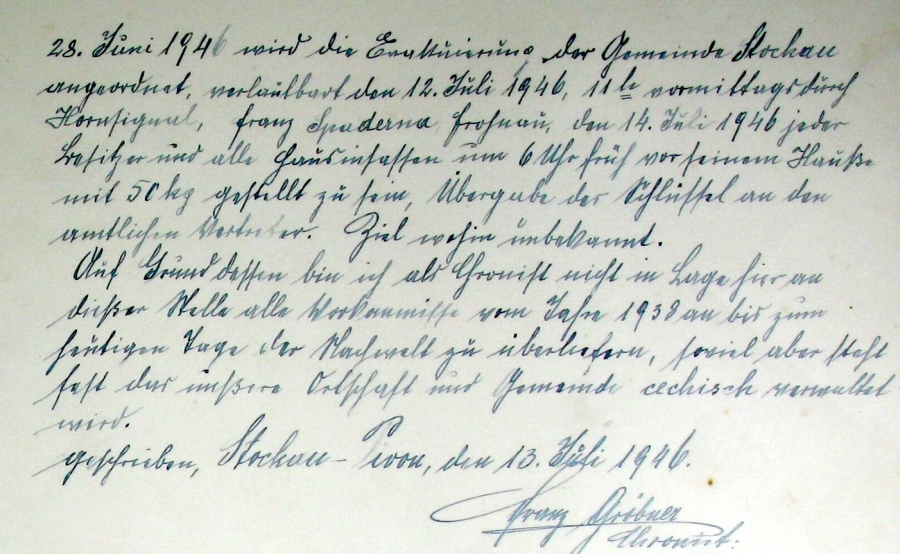 28. Juni 1946 wird die Evakuierung der Gemeinde Stockau
angeordnet, verlautbart den 12. Juli 1946, 11 h vormittags durch
Hornsignal, Franz Spaderna, Frohnau, den 14. Juli 1946 jeder
Besitzer und alle Hausinsassen um 6 Uhr früh vor seinem Hauße
mit 50 kg gestellt zu sein, Übergabe der Schlüssel an den
amtlichen Vertreter. Ziel wohin unbekannt.
Auf Grund dessen bin ich als Chronist nicht in Lage hier an
dießer Stelle alle Vorkommisse vom Jahre 1938 an bis zum
heutigen Tage der Nachwelt zu überliefern, soviel aber steht
fest das unßere Ortschaft und Gemeinde cechisch verwaltet
wird.
geschrieben, Stockau - Pivon, den 13. Juli 1946.
Franz Gröbner
Chronist.